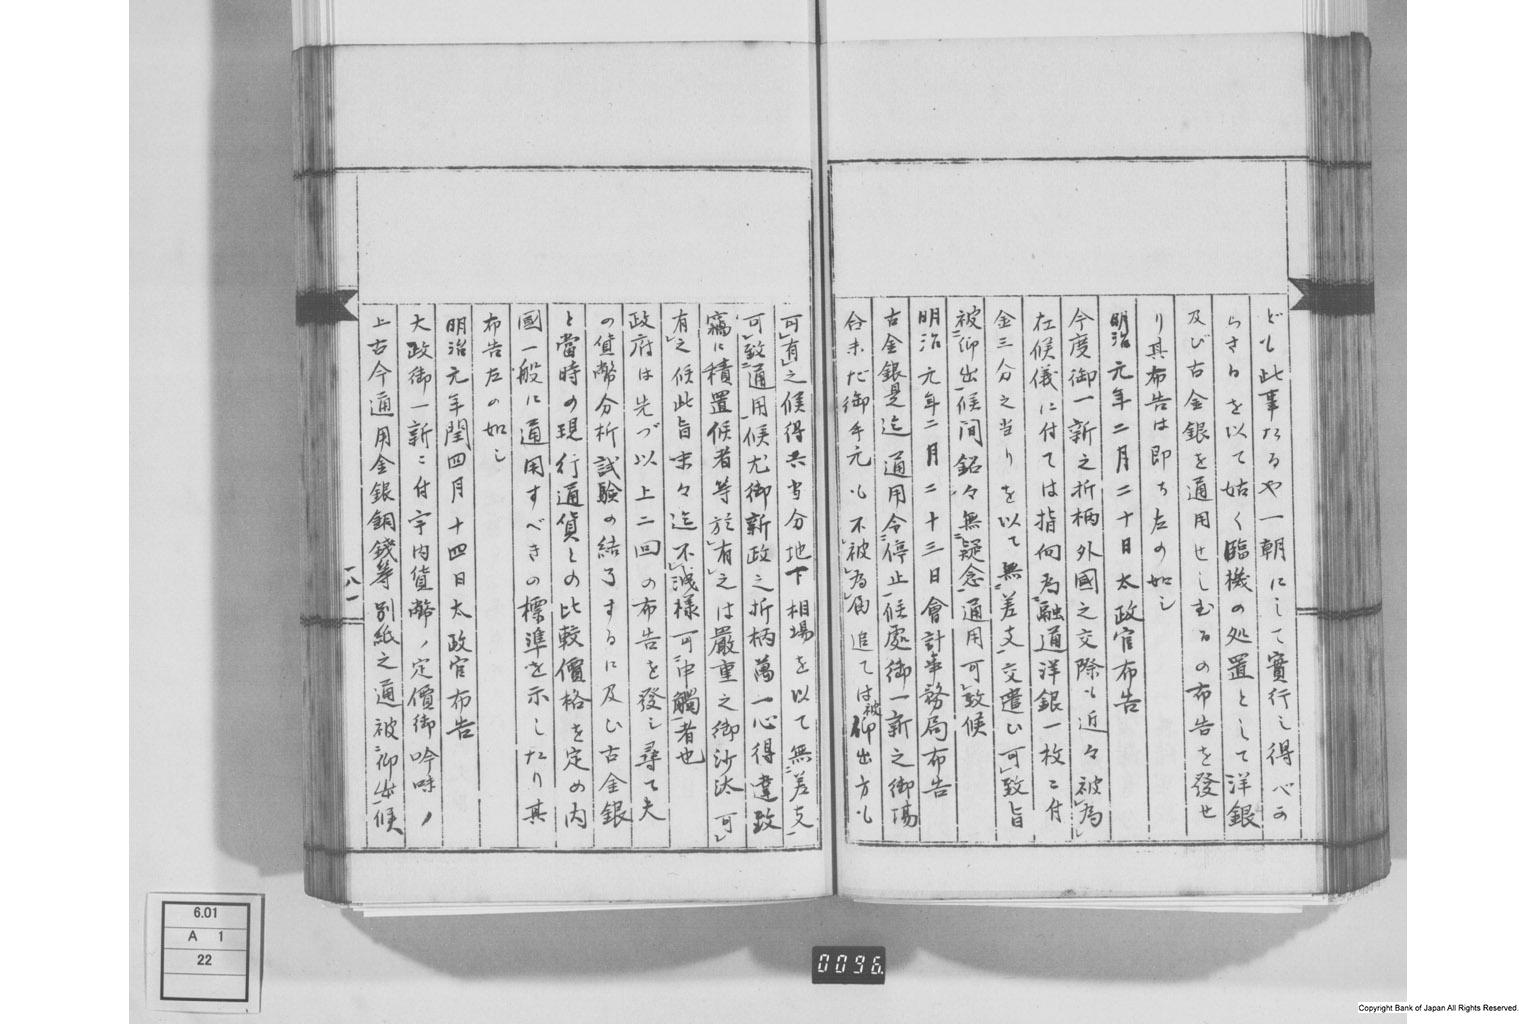 ども此事たるや一朝にして實行し得べか
らざるを以て姑く臨機の処置として洋銀
及び古金銀を通用せしむるの布告を發せ
り其布告は即ち左の如し
明治元年二月二十日太政官布告
今度御一新之折柄外國之交際も近々被為
在候儀に付ては指向為融通洋銀一枚ニ付
金三分之当りを以て無差支交遣ひ可致旨
被仰出候間銘々無疑念通用可致候
明治元年二月二十三日會計事務局布告
古金銀是迄通用令停止候處御一新之御場
合未だ御手元も不被為届追ては被仰出方も
可有之候得共当分地下相場を以て無差支
可致通用候尤御新政之折柄萬一心得違致
竊に積置候者等於有之は嚴重之御沙汰可
有之候此旨末々迄不洩様可申觸者也
政府は先づ以上二回の布告を發し尋て夫
の貨幣分析試驗の結了するに及ひ古金銀
と當時の現行通貨との比較價格を定め内
國一般に通用すべきの標準を示したり其
布告左の如し
明治元年閏四月十四日太政官布告
大政御一新ニ付宇内貨幣ノ定價御吟味ノ
上古今通用金銀銅錢等別紙之通被仰出候
一八一
6.01
A 1
22
0096
Copyright Bank of Japan All Rights Reserved.